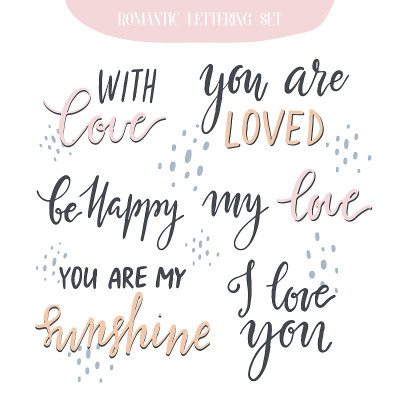 ROMANTIC LETTERING SET
WITH
love
you are
LOVED
be Happy
my love
YOU ARE MY
sunshine
I love
you